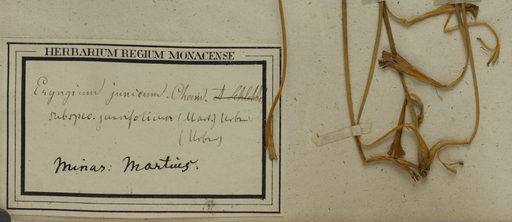 HERBARIUM REGIUM MONACENSE
Eryngium junceum Cham.
subspec. juncifolium (Mart.) Urban
(Urban)
Minas: Martius.